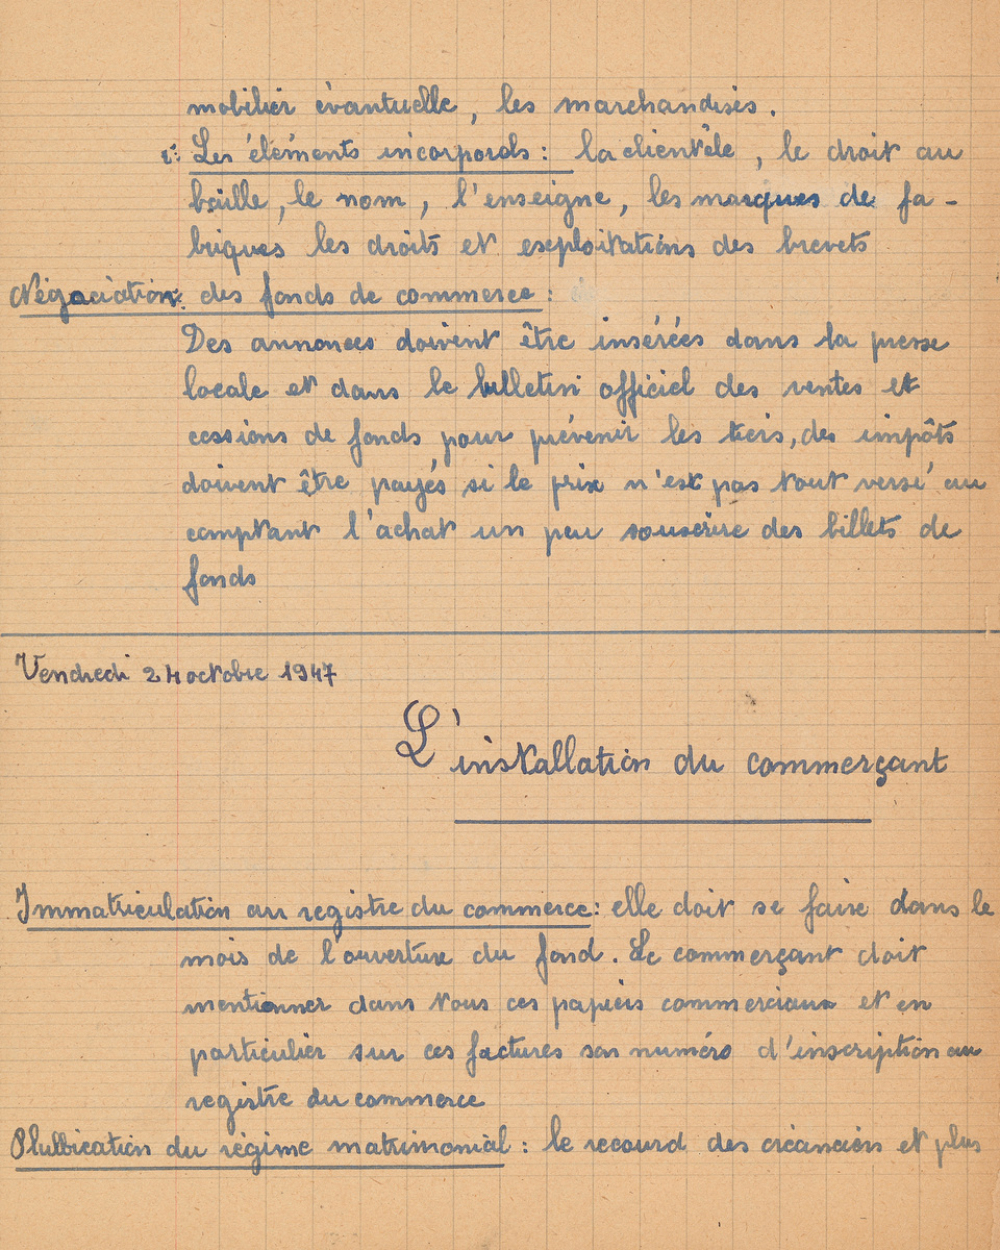 mobilier évantuelle, les marchandises.
2: Les éléments incorporels : la clientèle, le droit au
baille, le nom, l'enseigne, les marques de fa-
briques les droits et exploitations des brevets
Négociation des fonds de commerce :
Des annonces doivent être insérées dans la presse
locale et dans le bulletin officiel des ventes et
cessions de fonds pour prévenir les tiers, des impôts
doivent être payés si le prix n'est pas tout versé au
comptant l'achat un peu souscrire des billets de
fonds
Vendredi 24 octobre 1947
L'installation du commerçant
Immatriculation au registre du commerce : elle doit se faire dans le
mois de l'ouverture du fond. Le commerçant doit
mentionner dans tous ces papiers commerciaux et en
particulier sur ces factures son numéro d'inscription au
registre du commerce
Plubication du régime matrimonial : le recourd des créanciers et plus